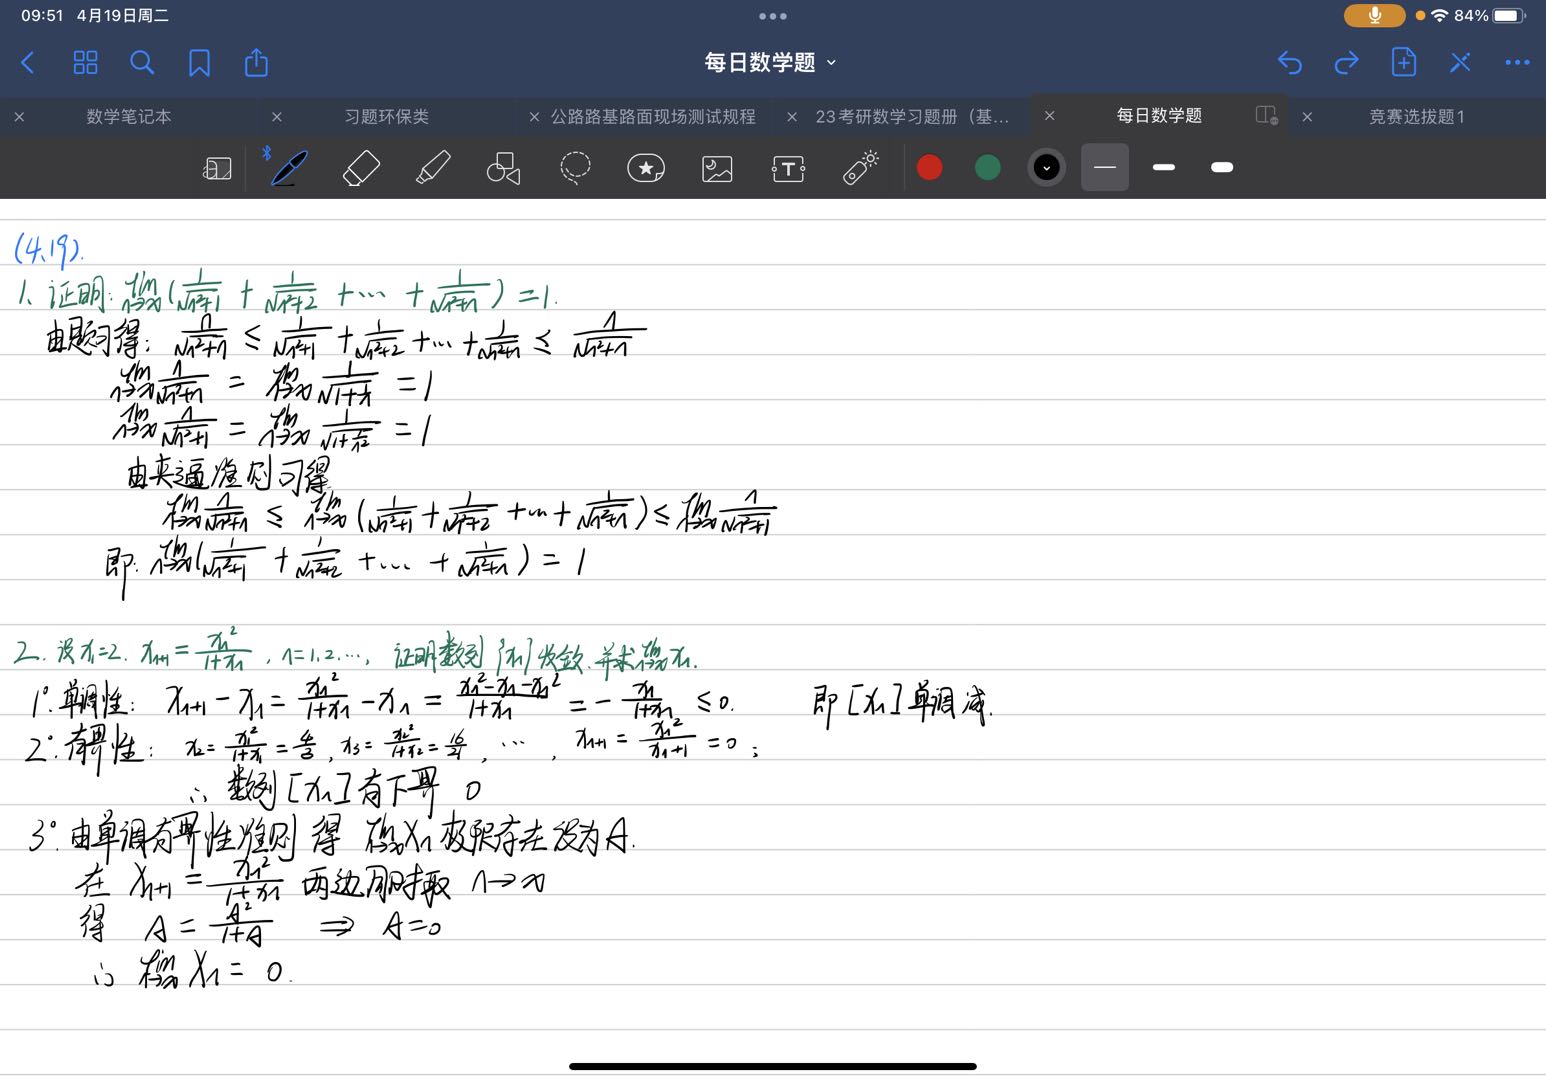 09:51 4月19日周二
84%
每日数学题
数学笔记本
习题环保类
公路路基路面现场测试规程
23考研数学习题册（基...
每日数学题
竞赛选拔题1
(4.19).
1、证明: lim n→∞ (1/√(n²+1) + 1/√(n²+2) + … + 1/√(n²+n)) = 1.
由题可得: n/√(n²+n) ≤ 1/√(n²+1) + 1/√(n²+2) + … + 1/√(n²+n) ≤ n/√(n²+1)
lim n→∞ n/√(n²+n) = lim n→∞ 1/√(1+1/n) = 1
lim n→∞ n/√(n²+1) = lim n→∞ 1/√(1+1/n²) = 1
由夹逼准则可得
lim n→∞ n/√(n²+n) ≤ lim n→∞ (1/√(n²+1) + 1/√(n²+2) + … + 1/√(n²+n)) ≤ lim n→∞ n/√(n²+1)
即: lim n→∞ (1/√(n²+1) + 1/√(n²+2) + … + 1/√(n²+n)) = 1
2. 设x₁=2. xₙ₊₁ = xₙ²/(1+xₙ), n=1.2.…, 证明数列{xₙ}收敛.并求lim n→∞ xₙ.
1°.单调性: xₙ₊₁ - xₙ = xₙ²/(1+xₙ) - xₙ = (xₙ²-xₙ-xₙ²)/(1+xₙ) = - xₙ/(1+xₙ) ≤ 0. 即[xₙ]单调减.
2°.有界性: x₂ = x₁²/(1+x₁) = 4/3, x₃ = x₂²/(1+x₂) = 16/21, …, xₙ₊₁ = xₙ²/(xₙ+1) = 0;
∴ 数列[xₙ]有下界 0
3°.由单调有界性准则 得 lim n→∞ Xₙ 极限存在设为A.
在 Xₙ₊₁ = xₙ²/(1+xₙ) 两边同时取 n→∞
得 A = A²/(1+A) ⇒ A=0
∴ lim n→∞ Xₙ = 0.